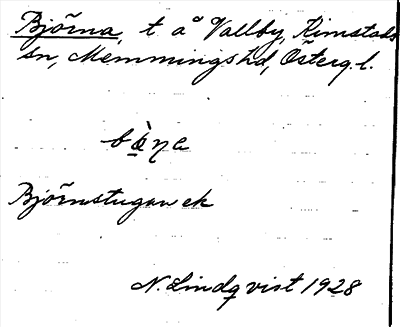 Björna, t. å Vallby, Kimstads
sn, Memmings hd, Österg. l.
Björnstugan ek
N. Lindqvist 1928